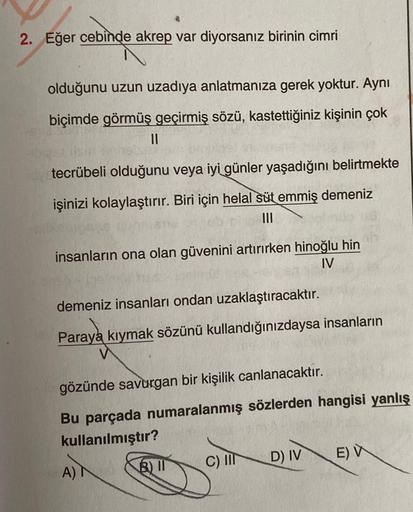 2. Eğer cebinde akrep var diyorsanız birinin cimri
I
olduğunu uzun uzadıya anlatmanıza gerek yoktur. Aynı
biçimde görmüş geçirmiş sözü, kastettiğiniz kişinin çok
II
tecrübeli olduğunu veya iyi günler yaşadığını belirtmekte
işinizi kolaylaştırır. Biri için helal süt emmiş demeniz
III
insanların ona olan güvenini artırırken hinoğlu hin
IV
demeniz insanları ondan uzaklaştıracaktır.
Paraya kıymak sözünü kullandığınızdaysa insanların
V
gözünde savurgan bir kişilik canlanacaktır.
Bu parçada numaralanmış sözlerden hangisi yanlış
kullanılmıştır?
A) I B) II C) III D) IV E) V